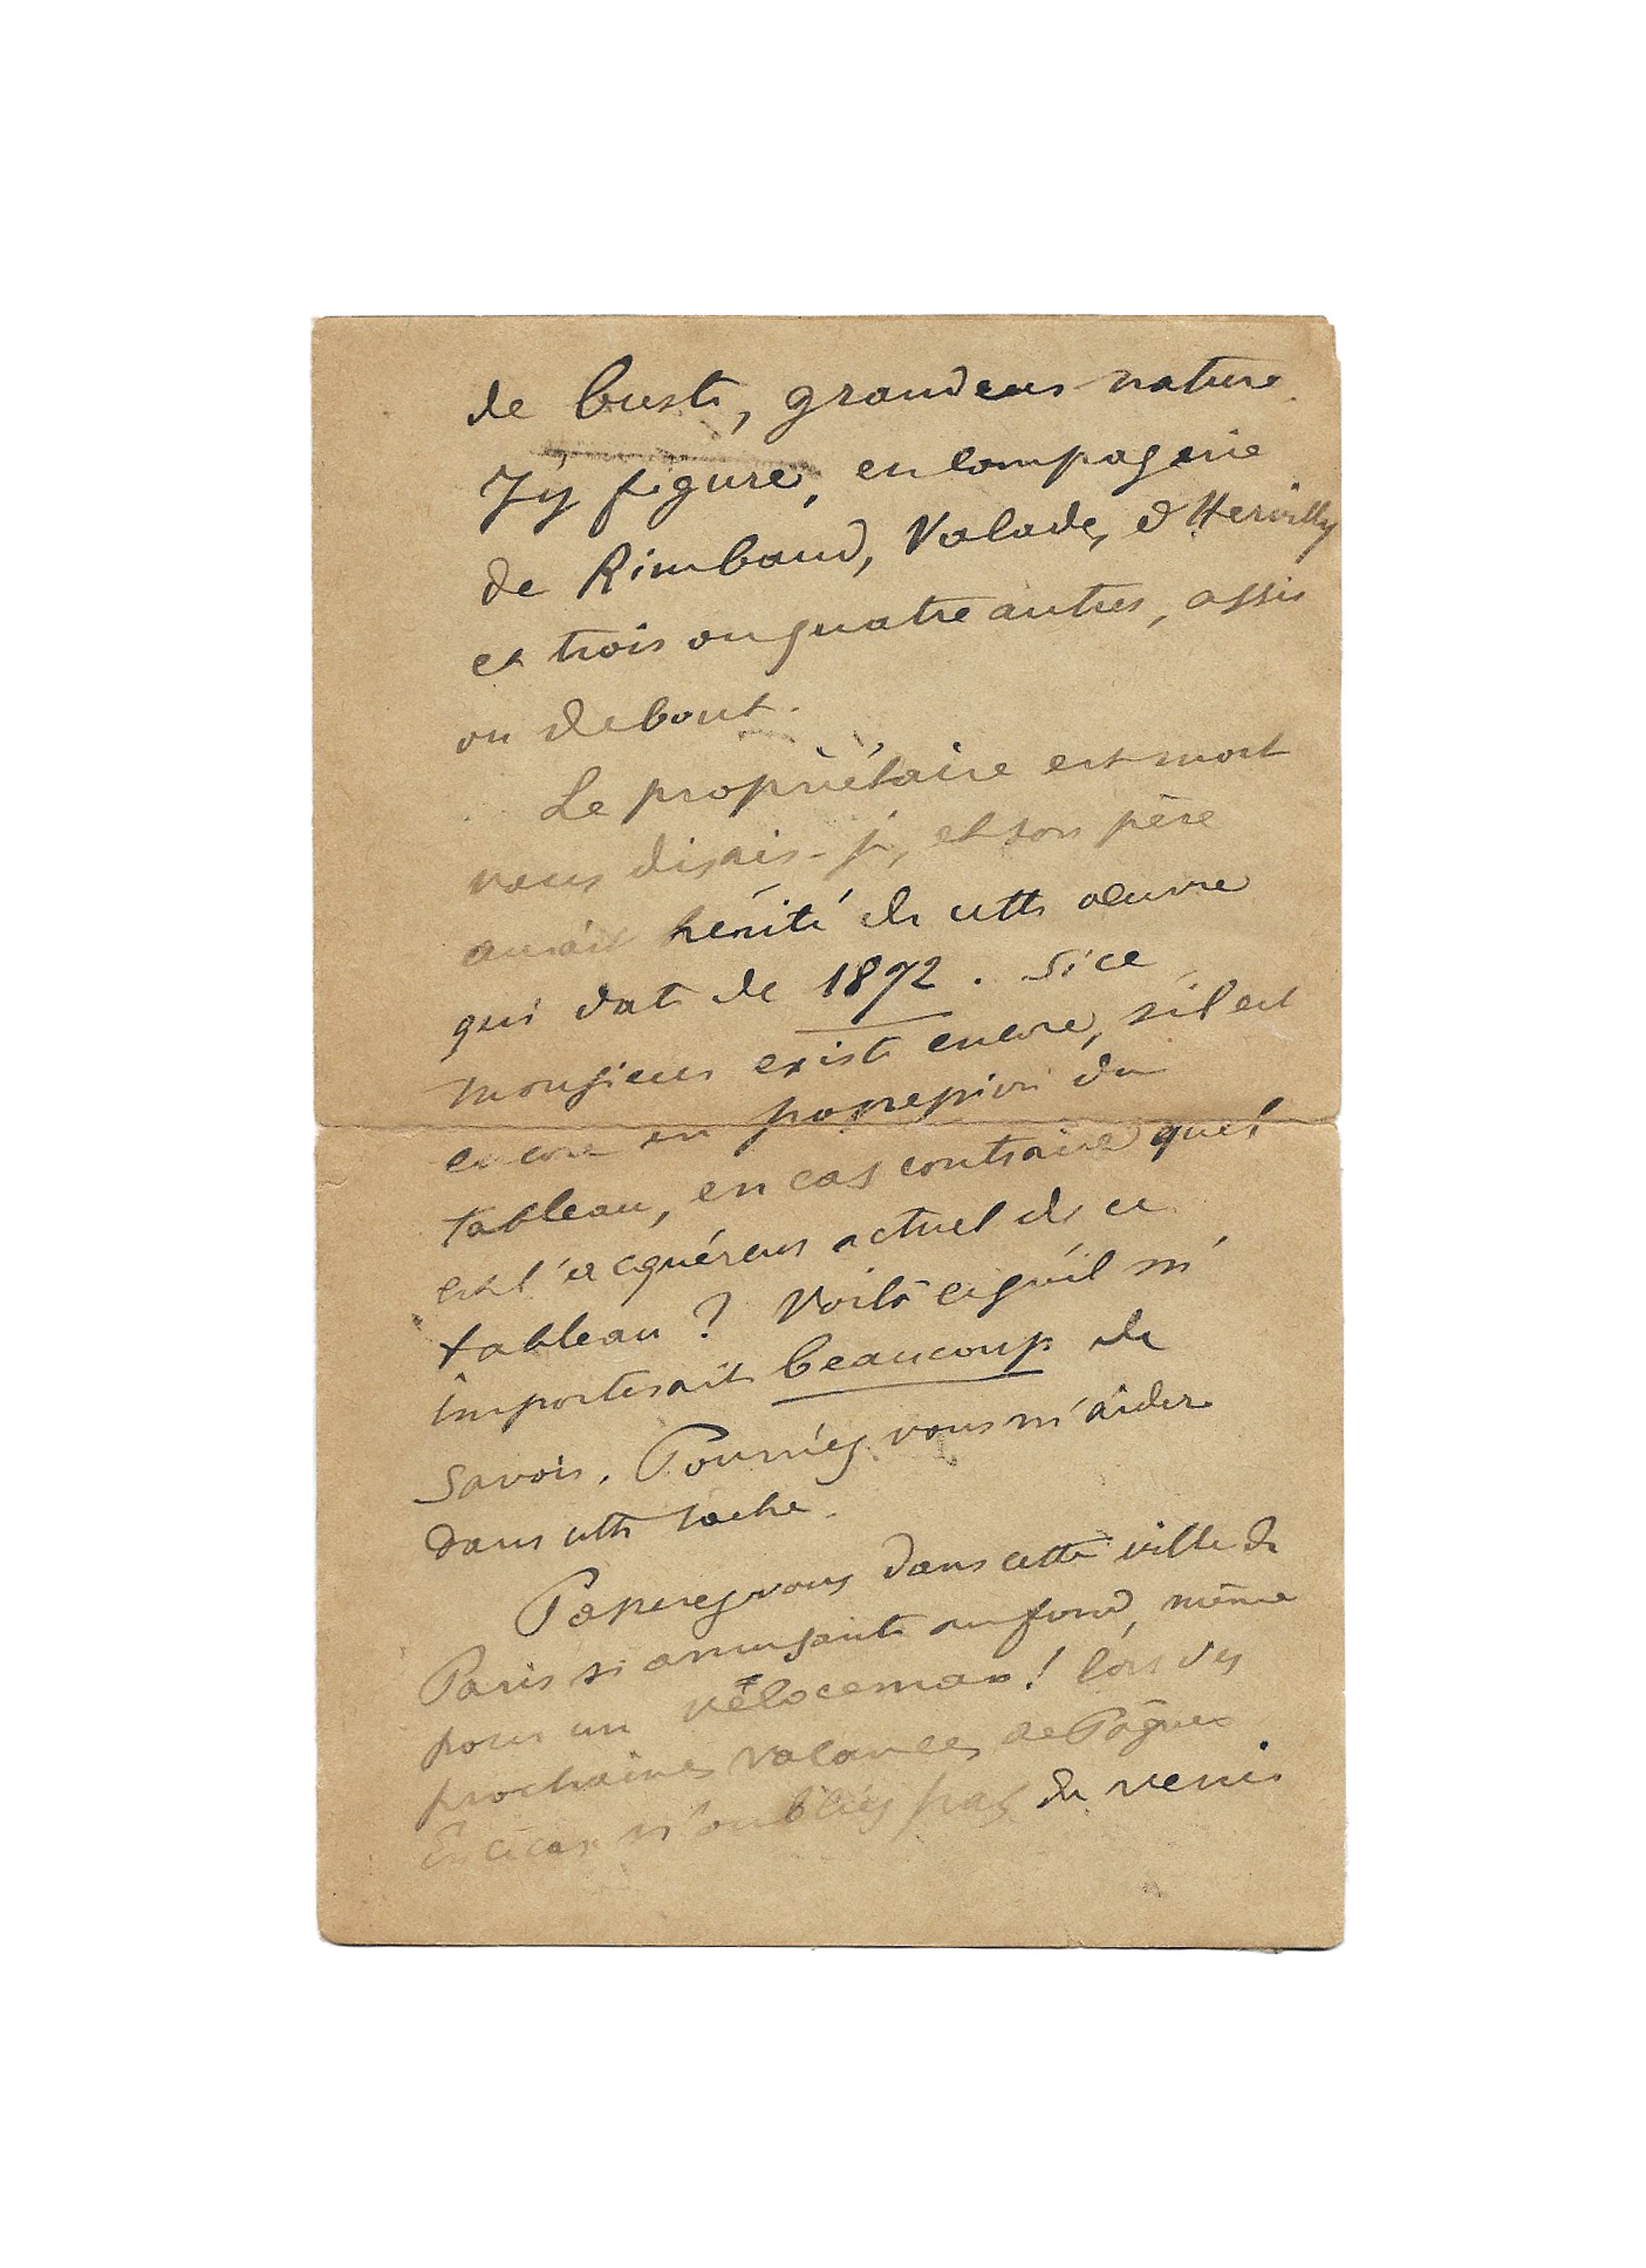 de buste, grandeur nature.
J'y figure, en compagnie
de Rimbaud, Valade, d'Hervilly
et trois ou quatre autres, assis
ou debout.
Le propriétaire est mort
vous disais-je, et son père
aurait hérité de cette œuvre
qui date de 1872. Si ce
monsieur existe encore, s'il est
encore en possession du
tableau, en cas contraire quel
est l'acquéreur actuel de ce
tableau ? Voilà ce qu'il m'
importerait beaucoup de
savoir. Pourriez vous m'aider
dans cette tâche.
Passerez vous dans cette ville de
Paris si amusante au fond, même
pour un véloceman ! lors des
prochaines vacances de Pâques
En ce cas n'oubliez pas de venir